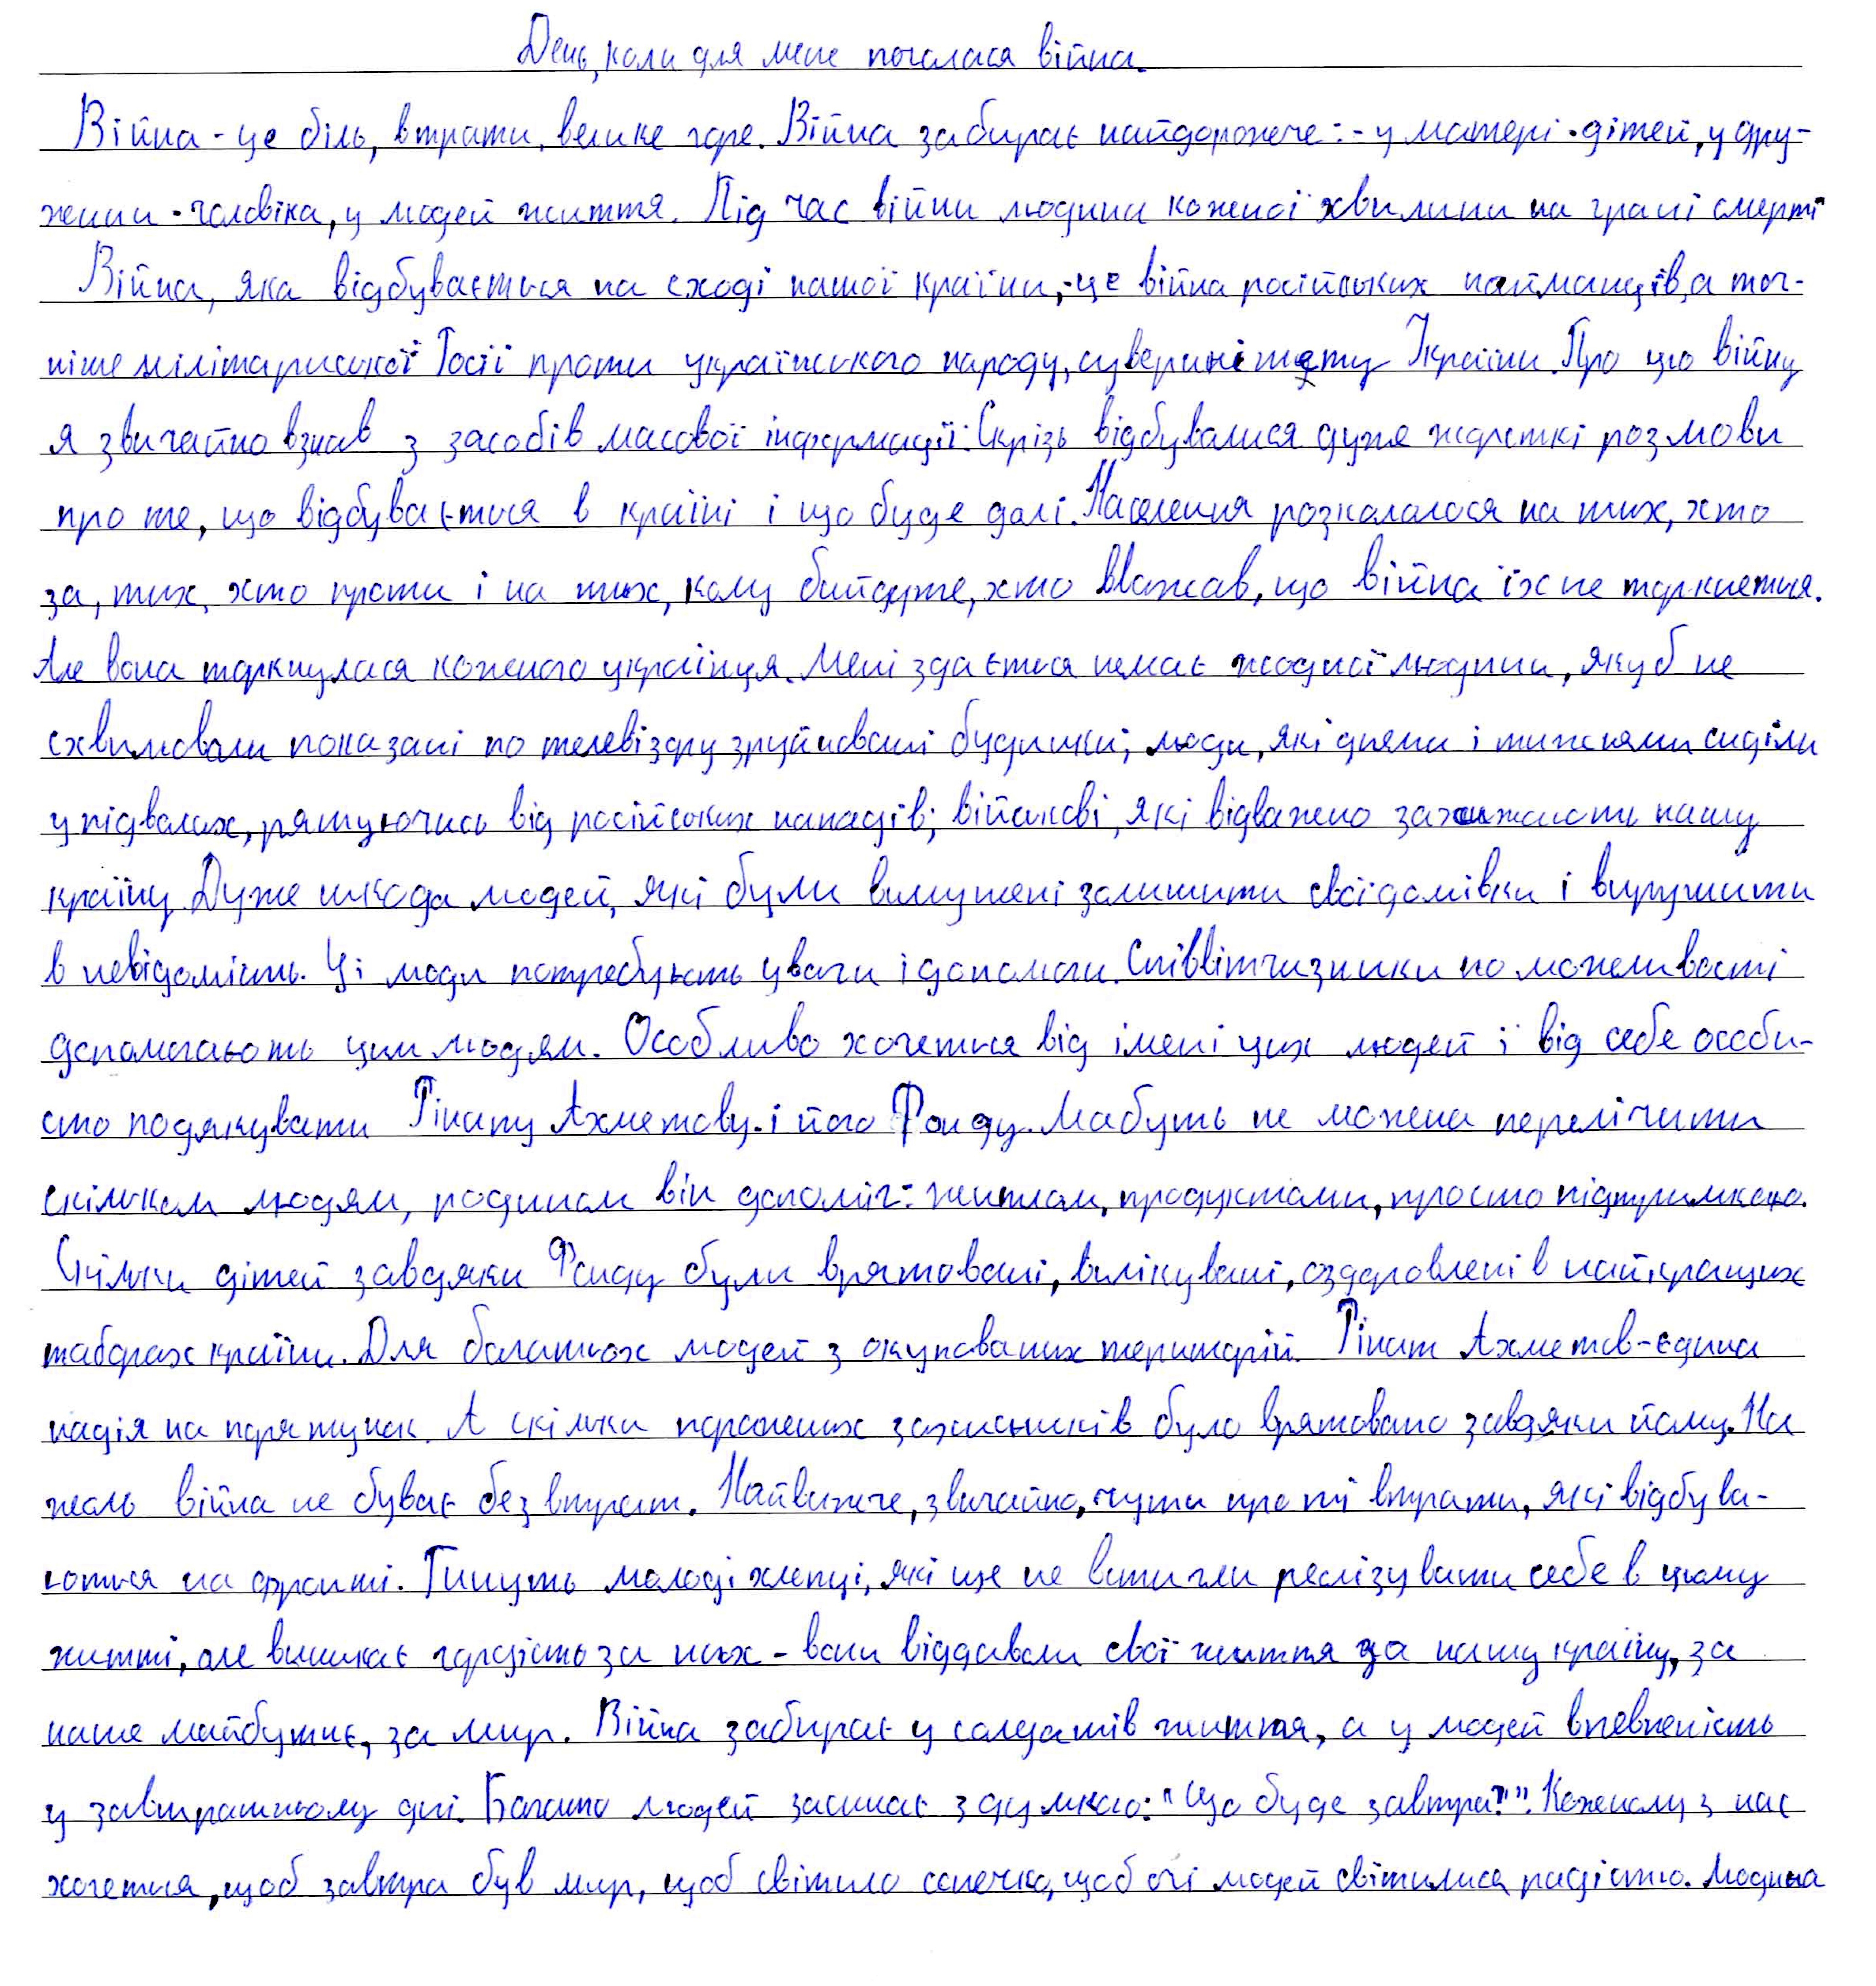 День, коли для мене почалася війна.
Війна - це біль, втрати, велике горе. Війна забирає найдорожче: - у матері - дітей, у дру-
жини - чоловіка, у людей життя. Під час війни людина кожної хвилини на грані смерті
Війна, яка відбувається на сході нашої країни, - це війна російських найманців, а точ-
ніше мілітариської Росії проти українського народу, суверинітету України. Про цю війну
я звичайно взнав з засобів масової інформації. Скрізь відбувалися дуже жорсткі розмови
про те, що відбувається в країні і що буде далі. Населення розкололося на тих, хто
за, тих, хто проти і на тих, кому байдуже, хто вважав, що війна їх не торкнеться.
Але вона торкнулася кожного українця. Мені здається немає жодної людини, яку б не
схвилювали показані по телевізору зруйновані будинки; люди, які днями і тижнями сиділи
у підвалах, рятуючись від російських нападів; військові, які відважено захищають нашу
країну. Дуже шкода людей, які були вимушені залишити свої домівки і вирушити
в невідомість. Ці люди потребують уваги і допомоги. Співвітчизники по можливості
допомагають цим людям. Особливо хочеться від імені цих людей і від себе особи-
сто подякувати Рінату Ахметову і його Фонду. Мабуть не можна перелічити
скільком людям, родинам він допоміг: житлом, продуктами, просто підтримкою.
Скільки дітей завдяки Фонду були врятовані, вилікувані, оздоровлені в найкращих
таборах країни. Для багатьох людей з окупованих територій Рінат Ахметов - єдина
надія на порятунок. А скільки поранених захисників було врятовано завдяки йому. На
жаль війна не буває без втрат. Найважче, звичайно, чути про ті втрати, які відбува-
ються на фронті. Гинуть молоді хлопці, які ще не встигли реалізувати себе в цьому
житті, але виникає гордість за них - вони віддавали свої життя за нашу країну, за
наше майбутнє, за мир. Війна забирає у солдатів життя, а у людей впевненість
у завтрашньому дні. Багато людей засинає з думкою: "Що буде завтра?". Кожному з нас
хочеться, щоб завтра був мир, щоб світило сонечко, щоб очі людей світилися радістю. Людина